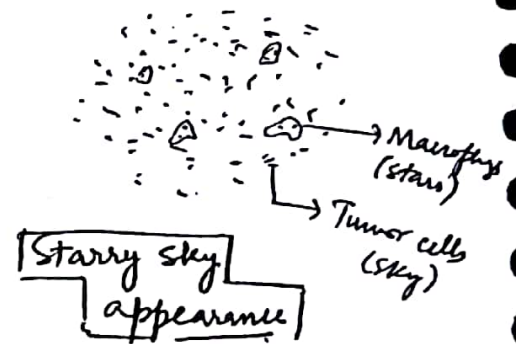 Macrophgs
(stars)
Tumor cells
(sky)
Starry sky
appearance